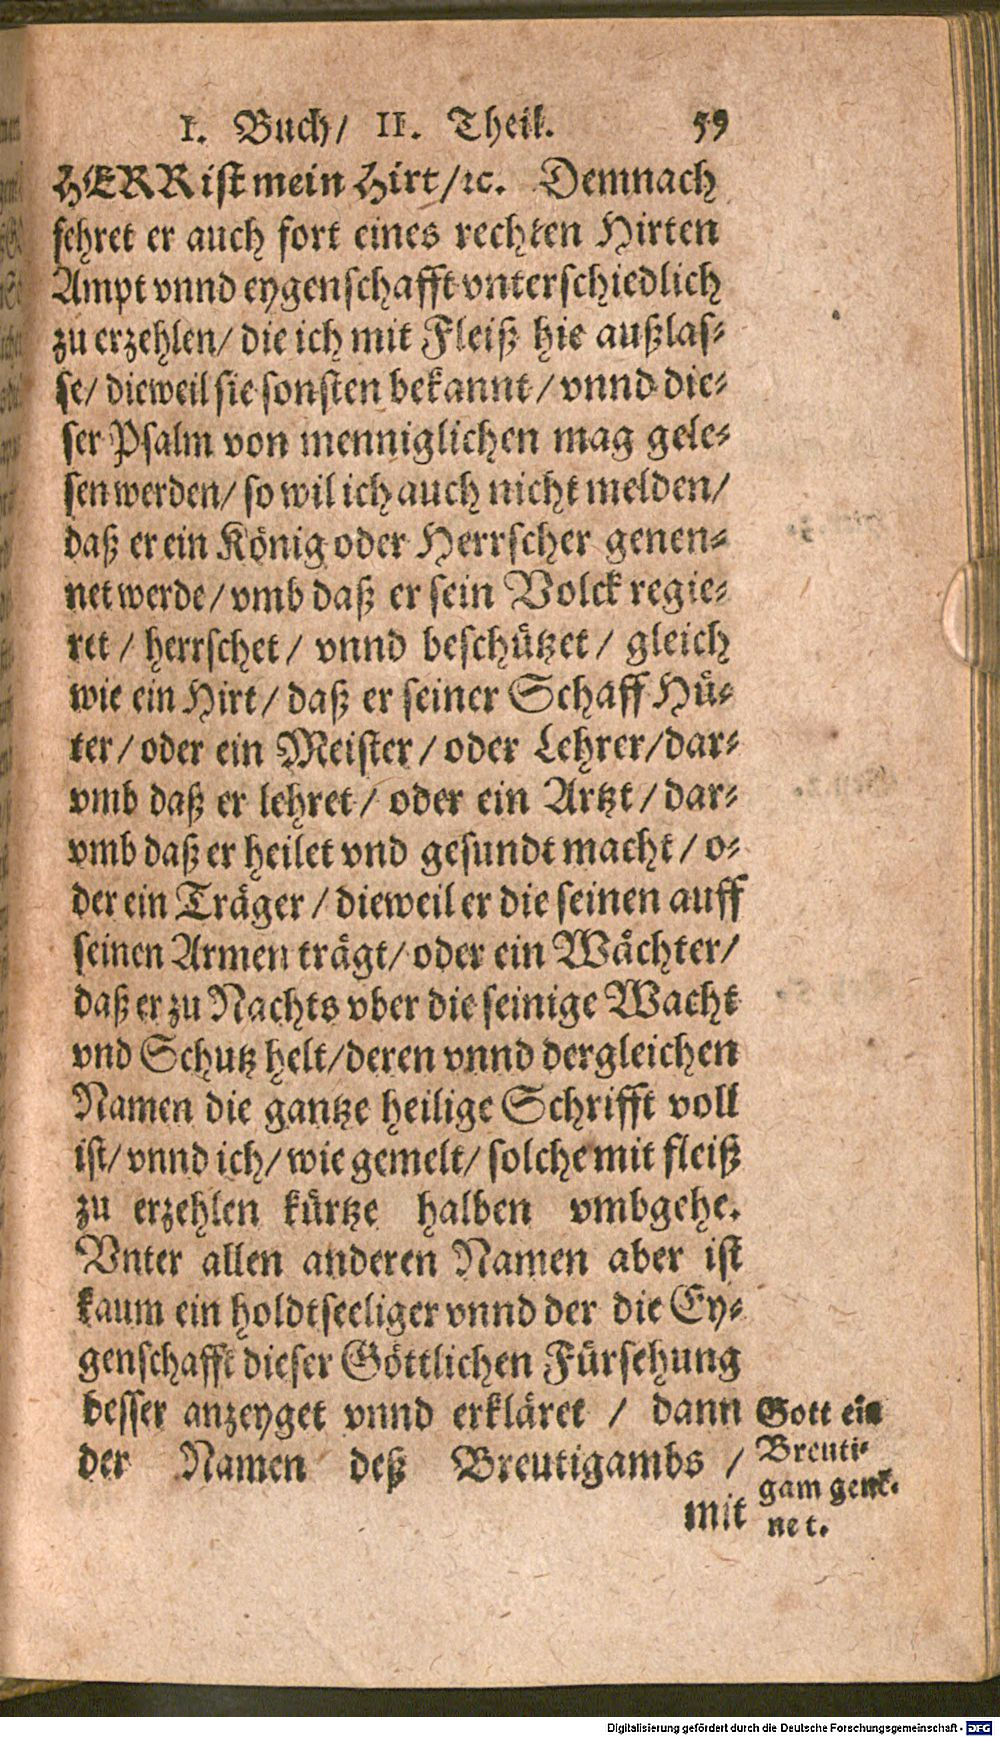 I. Buch/ II. Theil. 59
HERR ist mein Hirt/ꝛc. Demnach
fehret er auch fort eines rechten Hirten
Ampt vnnd eygenschafft vnterschiedlich
zu erzehlen/ die ich mit Fleiß hie außlas⸗
se/ dieweil sie sonsten bekannt/ vnnd die⸗
ser Psalm von menniglichen mag gele⸗
sen werden/ so wil ich auch nicht melden/
daß er ein König oder Herrscher genen⸗
net werde/ vmb daß er sein Volck regie⸗
ret/ herrschet/ vnnd beschützet/ gleich
wie ein Hirt/ daß er seiner Schaff Hü⸗
ter/ oder ein Meister/ oder Lehrer/dar⸗
vmb daß er lehret/ oder ein Artzt/ dar⸗
vmb daß er heilet vnd gesundt macht/ o⸗
der ein Träger/ dieweil er die seinen auff
seinen Armen trägt/ oder ein Wächter/
daß er zu Nachts vber die seinige Wacht
vnd Schutz helt/deren vnnd dergleichen
Namen die gantze heilige Schrifft voll
ist/ vnnd ich/ wie gemelt/ solche mit fleiß
zu erzehlen kürtze halben vmbgehe.
Vnter allen anderen Namen aber ist
kaum ein holdtseeliger vnnd der die Ey⸗
genschafft dieser Göttlichen Fürsehung
besser anzeyget vnnd erkläret / dann
der Namen deß Breutigambs /
mit
Gott ein
Breuti⸗
gam genẽ⸗
net.
Digitalisierung gefördert durch die Deutsche Forschungsgemeinschaft - DFG